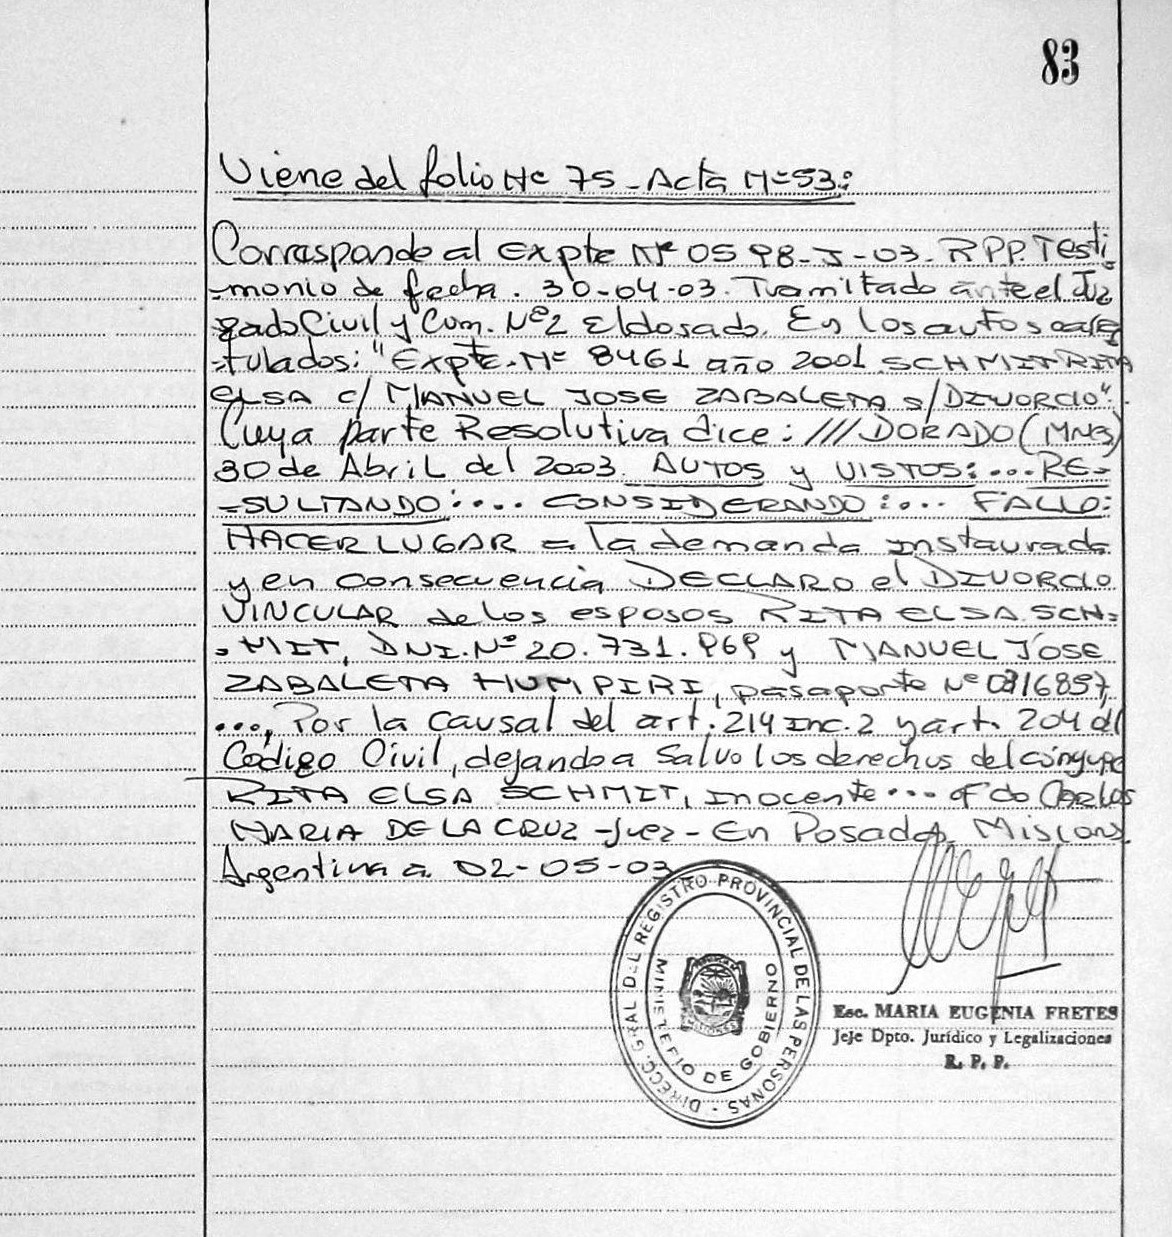 83
Viene del folio Nº 75 - Acta Nº 53:
Corresponde al Expte Nº 0598-J-03- RPP. Testi
-monio de fecha. 30-04-03. Tramitado ante el Juz
gado Civil y Com. Nº2 Eldorado. En los autos cara
-tulados: "Expte. Nº 8461 año 2001 SCHMIT RITA
ELSA c/ MANUEL JOSE ZABALETA s/ DIVORCIO".
Cuya parte Resolutiva dice: ///DORADO (MNES)
30 de Abril del 2003. AUTOS y VISTOS:... RE-
-SULTANDO:.... CONSIDERANDO:... FALLO:
HACER LUGAR a la demanda instaurada
y en consecuencia DECLARO el DIVORCIO
VINCULAR de los esposos RITA ELSA SCH-
-MIT, DNI. Nº 20.731.969 y MANUEL JOSE
ZABALETA HUMPIRI, pasaporte Nº 0316897,
..., Por la causal del art. 214 Inc. 2 y art. 204 del
Código Civil, dejando a salvo los derechos del cónyuge
RITA ELSA SCHMIT, inocente... Fdo Carlos
MARIA DE LA CRUZ - Juez - En Posadas, Misiones
Argentina a 02-05-03
DIRECC. GRAL DEL REGISTRO PROVINCIAL DE LAS PERSONAS -
MINISTERIO DE GOBIERNO
Esc. MARIA EUGENIA FRETES
Jefe Dpto. Jurídico y Legalizaciones
R. P. P.